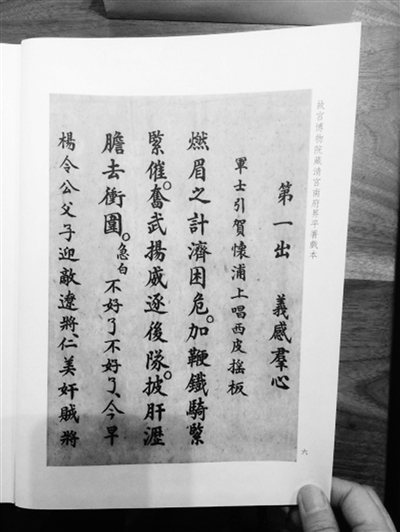 故宮博物院藏清宮南府昇平署戲本
第一出　義感羣心
軍士引賀懷浦上唱西皮摇板
燃眉之計濟困危。加鞭鐵騎緊
緊催。奮武揚威逐後隊。披肝瀝
膽去衝圍。急白不好了不好了、今早
楊令公父子迎敵遼將、仁美奸賊將
六